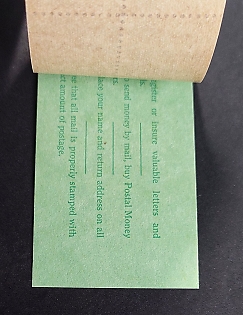 gister or insure valuable letters and
send money by mail, buy Postal Money
rs.
lace your name and return address on all
that all mail is properly stamped with
ct amount of postage.